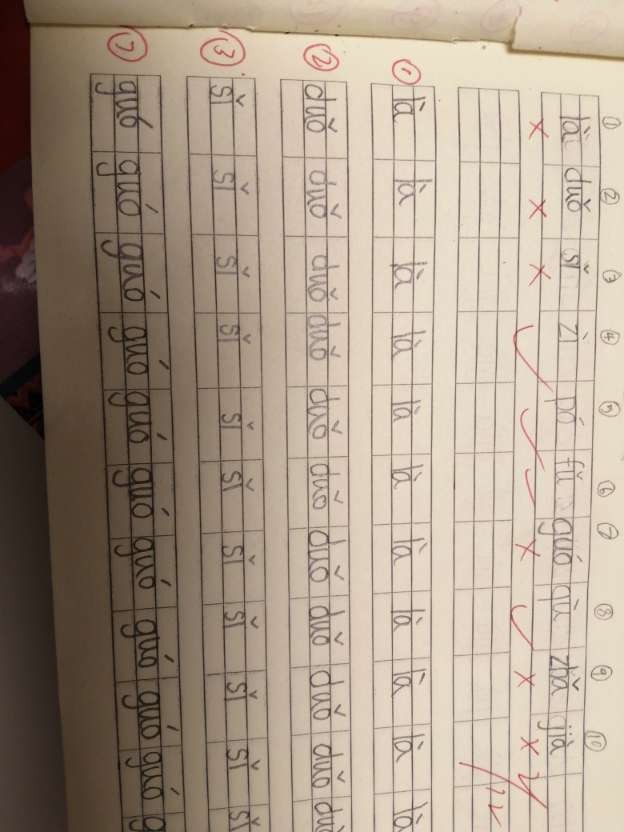 ① ② ③ ④ ⑤ ⑥ ⑦ ⑧ ⑨ ⑩
là duǒ sǐ zì pó fǔ guó qù zhǎ jià
① là là là là là là là là là là là
② duǒ duǒ duǒ duǒ duǒ duǒ duǒ duǒ duǒ duǒ duǒ
③ sǐ sǐ sǐ sǐ sǐ sǐ sǐ sǐ sǐ sǐ sǐ
⑦ guó guó guó guó guó guó guó guó guó guó g